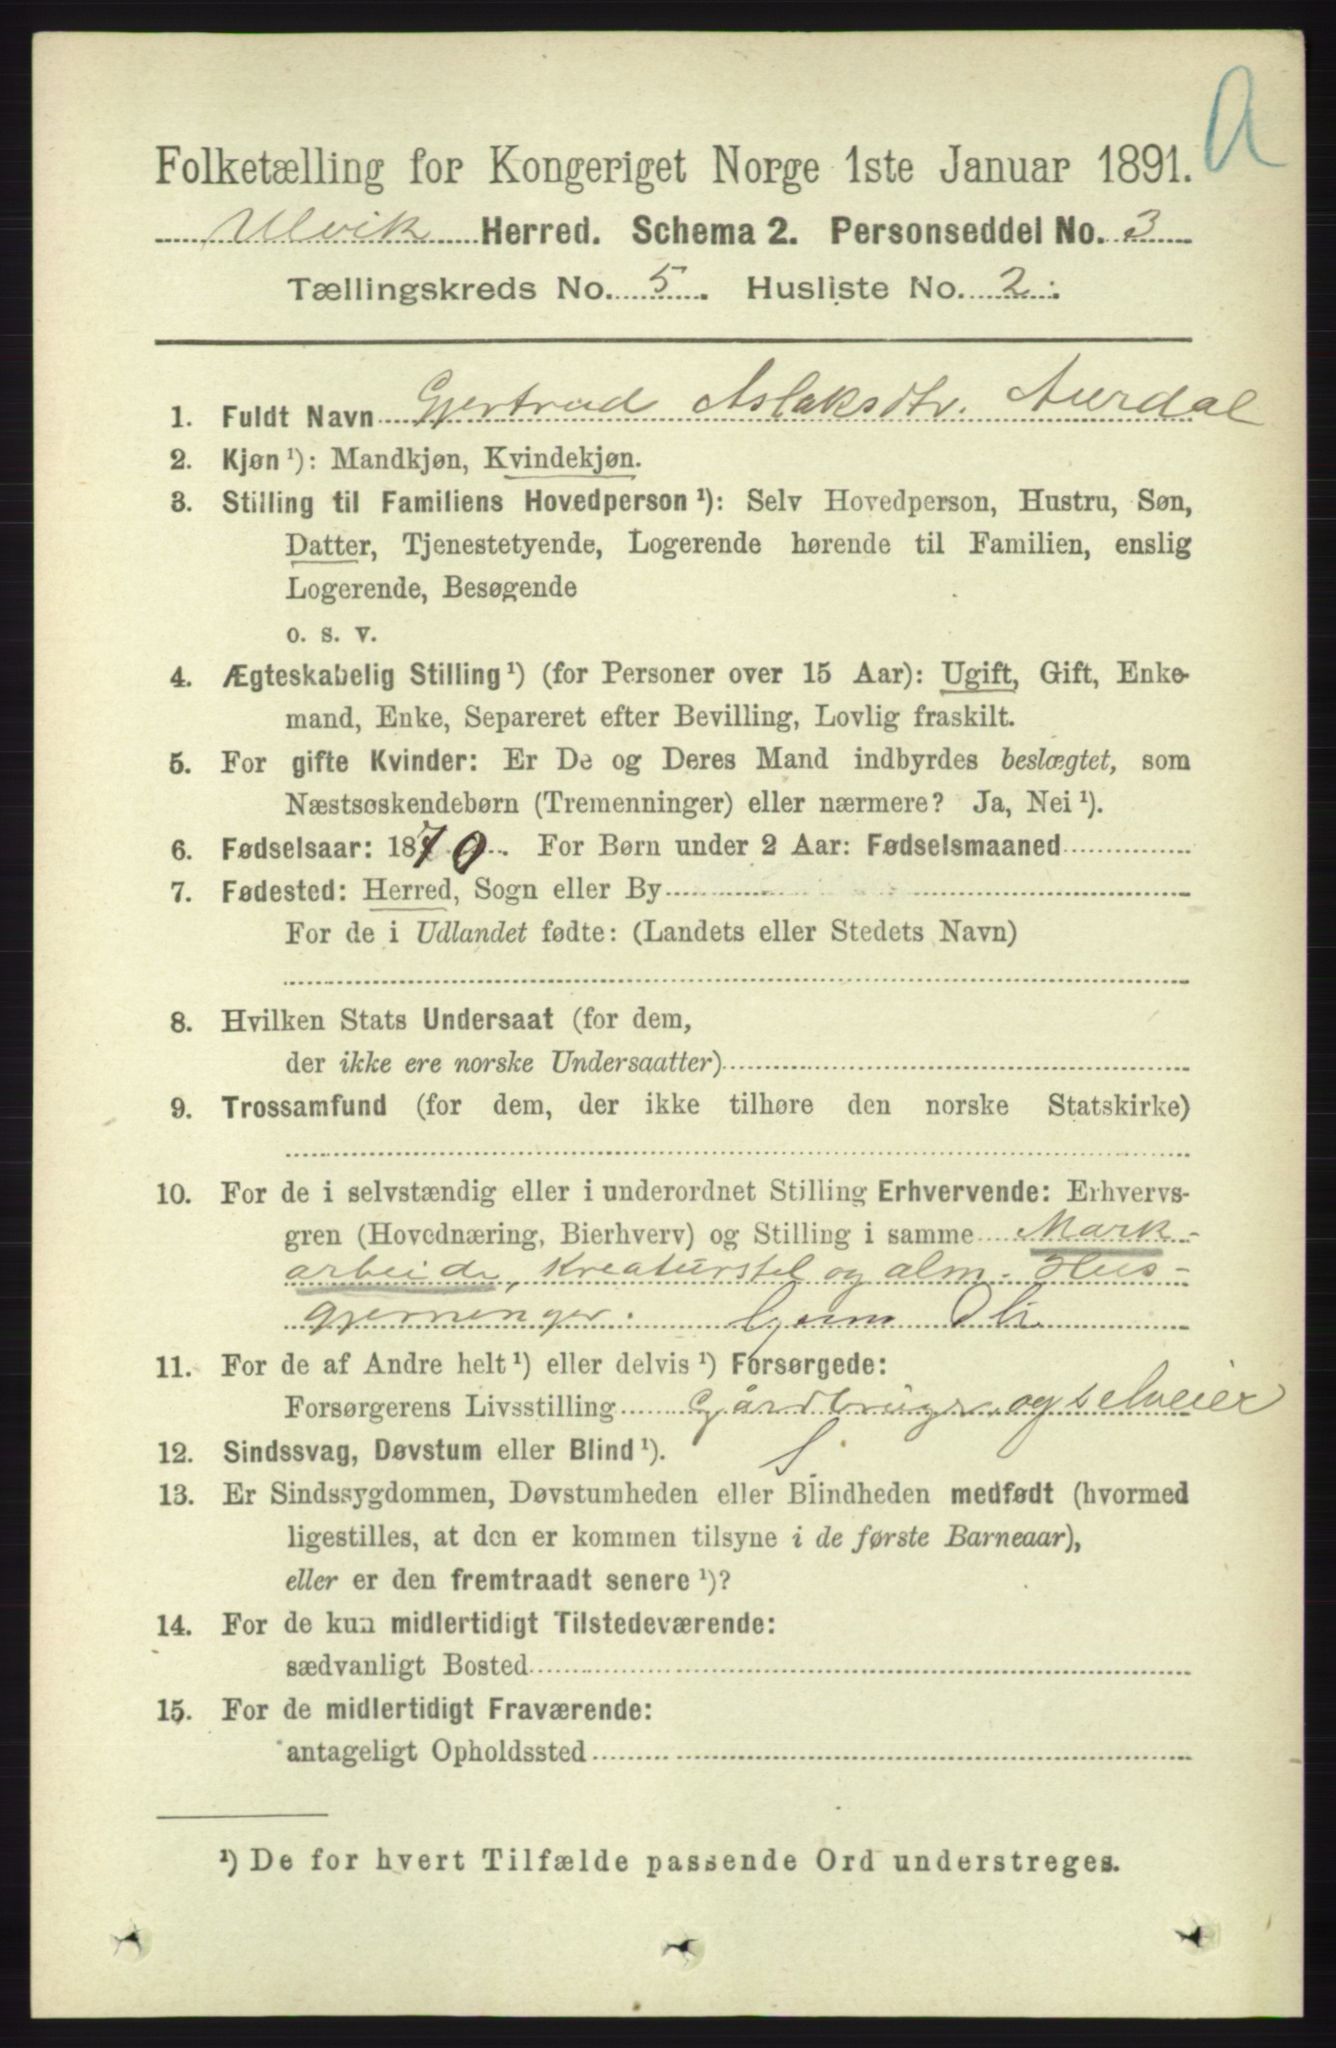 A
Folketælling for Kongeriget Norge 1ste Januar 1891.
Ulvik Herred. Schema 2. Personseddel No. 3
Tællingskreds No. 5. Husliste No. 2.
1. Fuldt Navn Gjertrud Aslaksdtr. Aurdal
2. Kjøn¹): Mandkjøn, Kvindekjøn.
3. Stilling til Familiens Hovedperson¹): Selv Hovedperson, Hustru, Søn,
Datter, Tjenestetyende, Logerende hørende til Familien, enslig
Logerende, Besøgende
o. s. v.
4. Ægteskabelig Stilling¹) (for Personer over 15 Aar): Ugift, Gift, Enke-
mand, Enke, Separeret efter Bevilling, Lovlig fraskilt.
5. For gifte Kvinder: Er De og Deres Mand indbyrdes beslægtet, som
Næstsøskendebørn (Tremenninger) eller nærmere? Ja, Nei¹).
6. Fødselsaar: 1870. For Børn under 2 Aar: Fødselsmaaned
7. Fødested: Herred, Sogn eller By
For de i Udlandet fødte: (Landets eller Stedets Navn)
8. Hvilken Stats Undersaat (for dem,
der ikke ere norske Undersaatter)
9. Trossamfund (for dem, der ikke tilhøre den norske Statskirke)
10. For de i selvstændig eller i underordnet Stilling Erhvervende: Erhvervs-
gren (Hovednæring, Bierhverv) og Stilling i samme Mark-
arbeide, Kreaturstel og alm. Hus-
gjerninger.
11. For de af Andre helt¹) eller delvis¹) Forsørgede:
Forsørgerens Livsstilling Gårdbruger og selveier
12. Sindssvag, Døvstum eller Blind¹). S.
13. Er Sindssygdommen, Døvstumheden eller Blindheden medfødt (hvormed
ligestilles, at den er kommen tilsyne i de første Barneaar),
eller er den fremtraadt senere¹)?
14. For de kun midlertidigt Tilstedeværende:
sædvanligt Bosted
15. For de midlertidigt Fraværende:
antageligt Opholdssted
¹) De for hvert Tilfælde passende Ord understreges.